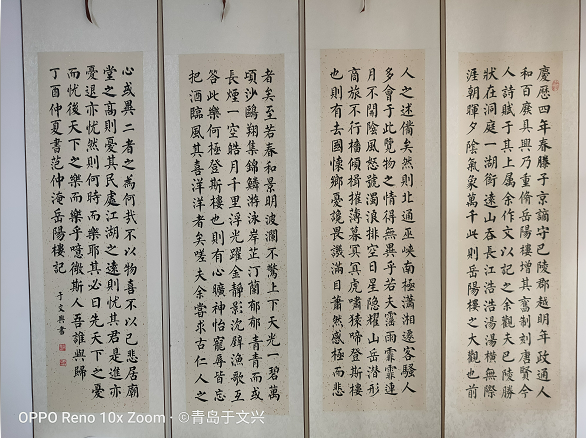 慶歷四年春滕子京謫守巴陵郡越明年政通人
和百廢具興乃重脩岳陽樓增其舊制刻唐賢今
人詩賦于其上属余作文以記之余觀夫巴陵勝
狀在洞庭一湖銜遠山吞長江浩浩湯湯橫無際
涯朝暉夕陰氣象萬千此則岳陽樓之大觀也前
人之述備矣然則北通巫峽南極瀟湘遷客騷人
多會于此覽物之情得無異乎若夫霪雨霏霏連
月不開陰風怒號濁浪排空日星隱耀山岳潛形
商旅不行檣傾楫摧薄暮冥冥虎嘯猿啼登斯樓
也則有去國懷鄉憂讒畏譏滿目蕭然感極而悲
者矣至若春和景明波瀾不驚上下天光一碧萬
頃沙鷗翔集錦鱗游泳岸芷汀蘭郁郁青青而或
長煙一空皓月千里浮光躍金靜影沈璧漁歌互
答此樂何極登斯樓也則有心曠神怡寵辱皆忘
把酒臨風其喜洋洋者矣嗟夫余嘗求古仁人之
心或異二者之為何哉不以物喜不以己悲居廟
堂之高則憂其民處江湖之遠則憂其君是進亦
憂退亦憂然則何時而樂耶其必曰先天下之憂
而憂後天下之樂而樂乎噫微斯人吾誰與歸
丁酉仲夏書范仲淹岳陽樓記
于文興書
OPPO Reno 10x Zoom · ©青岛于文兴